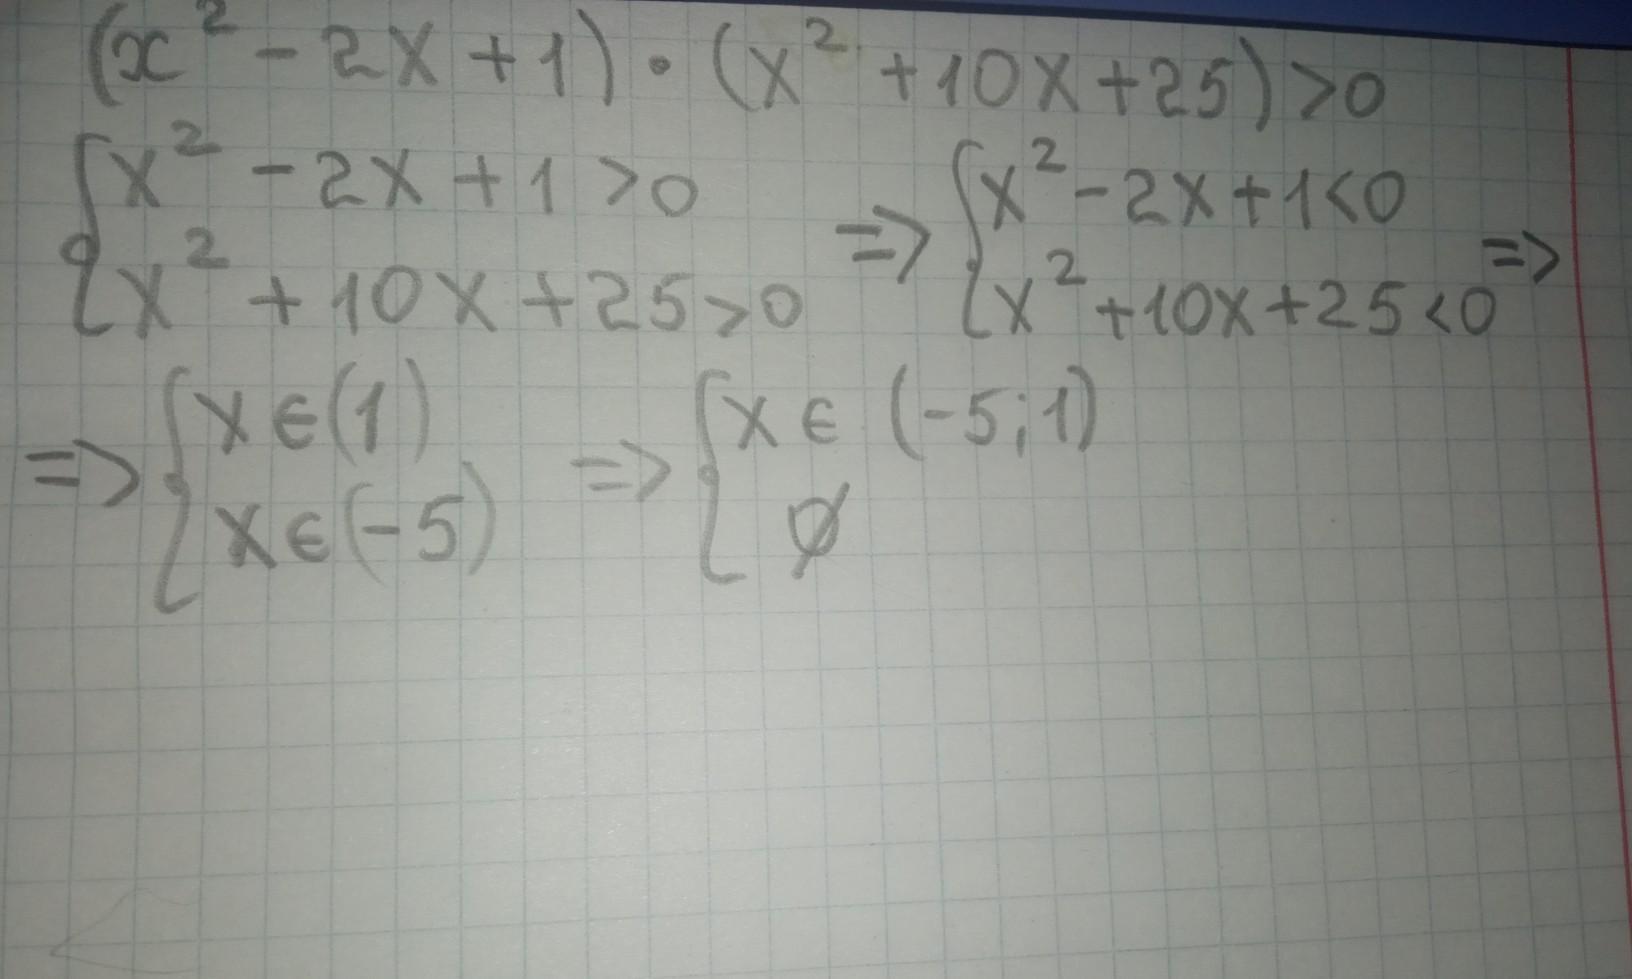 (x² - 2x + 1) · (x² + 10x + 25) > 0
{x² - 2x + 1 > 0 => {x² - 2x + 1 < 0
{x² + 10x + 25 > 0 {x² + 10x + 25 < 0 =>
=> {x ∈ (1) => {x ∈ (-5; 1)
{x ∈ (-5) ∅